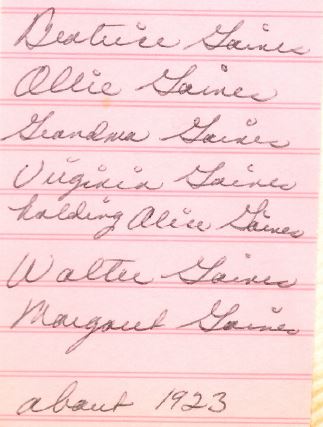 Beatrice Gaines
Ollie Gaines
Grandma Gaines
Virginia Gaines
holding Alice Gaines
Walter Gaines
Margaret Gaines
about 1923